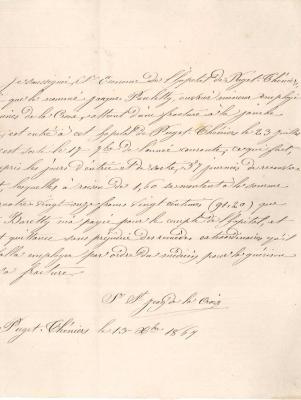 Je soussigné, Econome de l'hôpital de Puget-Théniers,
que le nommé Jacques ouvrier mineur employé
mines de la Croix, atteint d'une fracture à la jambe
est entré à cet hôpital de Puget-Théniers le 23 juillet
est sorti le 17 de l'année courante, ce qui fait,
compris les jours d'entrée et de sortie, 57 journées de
lesquelles à raison de 1,60 se montent à la somme
quatre vingt onze francs vingt centimes (91,20) que
Baretty m'a payée pour le compte de l'hôpital, et
quittance sans préjudice des remèdes extraordinaires qu'il
fallu employer par ordre du médecin pour la guérison
la fracture.
Sr St Joseph de la Croix
Puget-Théniers le 15 Xbre 1869